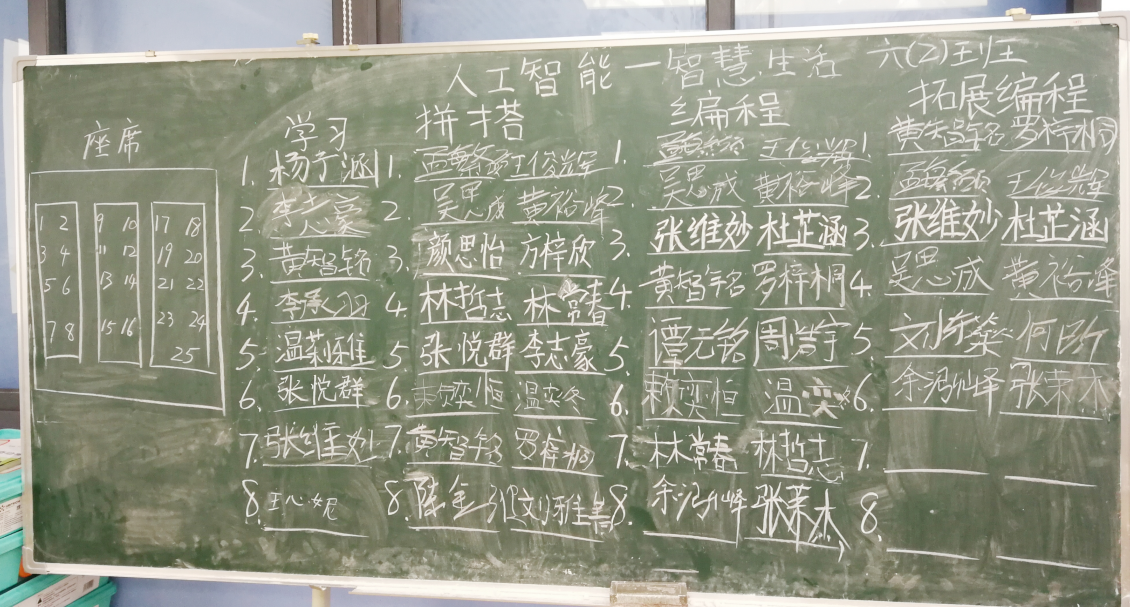 人工智能—智慧生活 六(2)班
座席 学习 拼搭 编程 拓展编程
1 2 9 10 17 18
3 4 11 12 19 20
5 6 13 14 21 22
7 8 15 16 23 24
25
1. 杨子涵 1. 孟繁 王俊辉 1. 王俊辉 1. 黄智铭 罗梓桐
2. 李志豪 2. 吴思成 黄裕峰 2. 吴思成 黄裕峰 2. 王俊辉
3. 黄智铭 3. 颜思怡 方梓欣 3. 张维妙 杜芷涵 3. 张维妙 杜芷涵
4. 李承羽 4. 林哲志 林常春 4. 黄智铭 罗梓桐 4. 吴思成 黄裕峰
5. 温莉雅 5 张悦群 李志豪 5. 谭元铭 周浩宇 5. 文 何
6. 张悦群 6. 赖奕恒 温奕冬 6. 赖奕恒 温奕 6. 余泓峰 张莱杰
7. 张维妙 7. 黄智铭 罗梓桐 7. 林常春 林哲志 7.
8. 王心妮 8. 陈金 刘雅 8. 余泓峰 张莱杰 8.